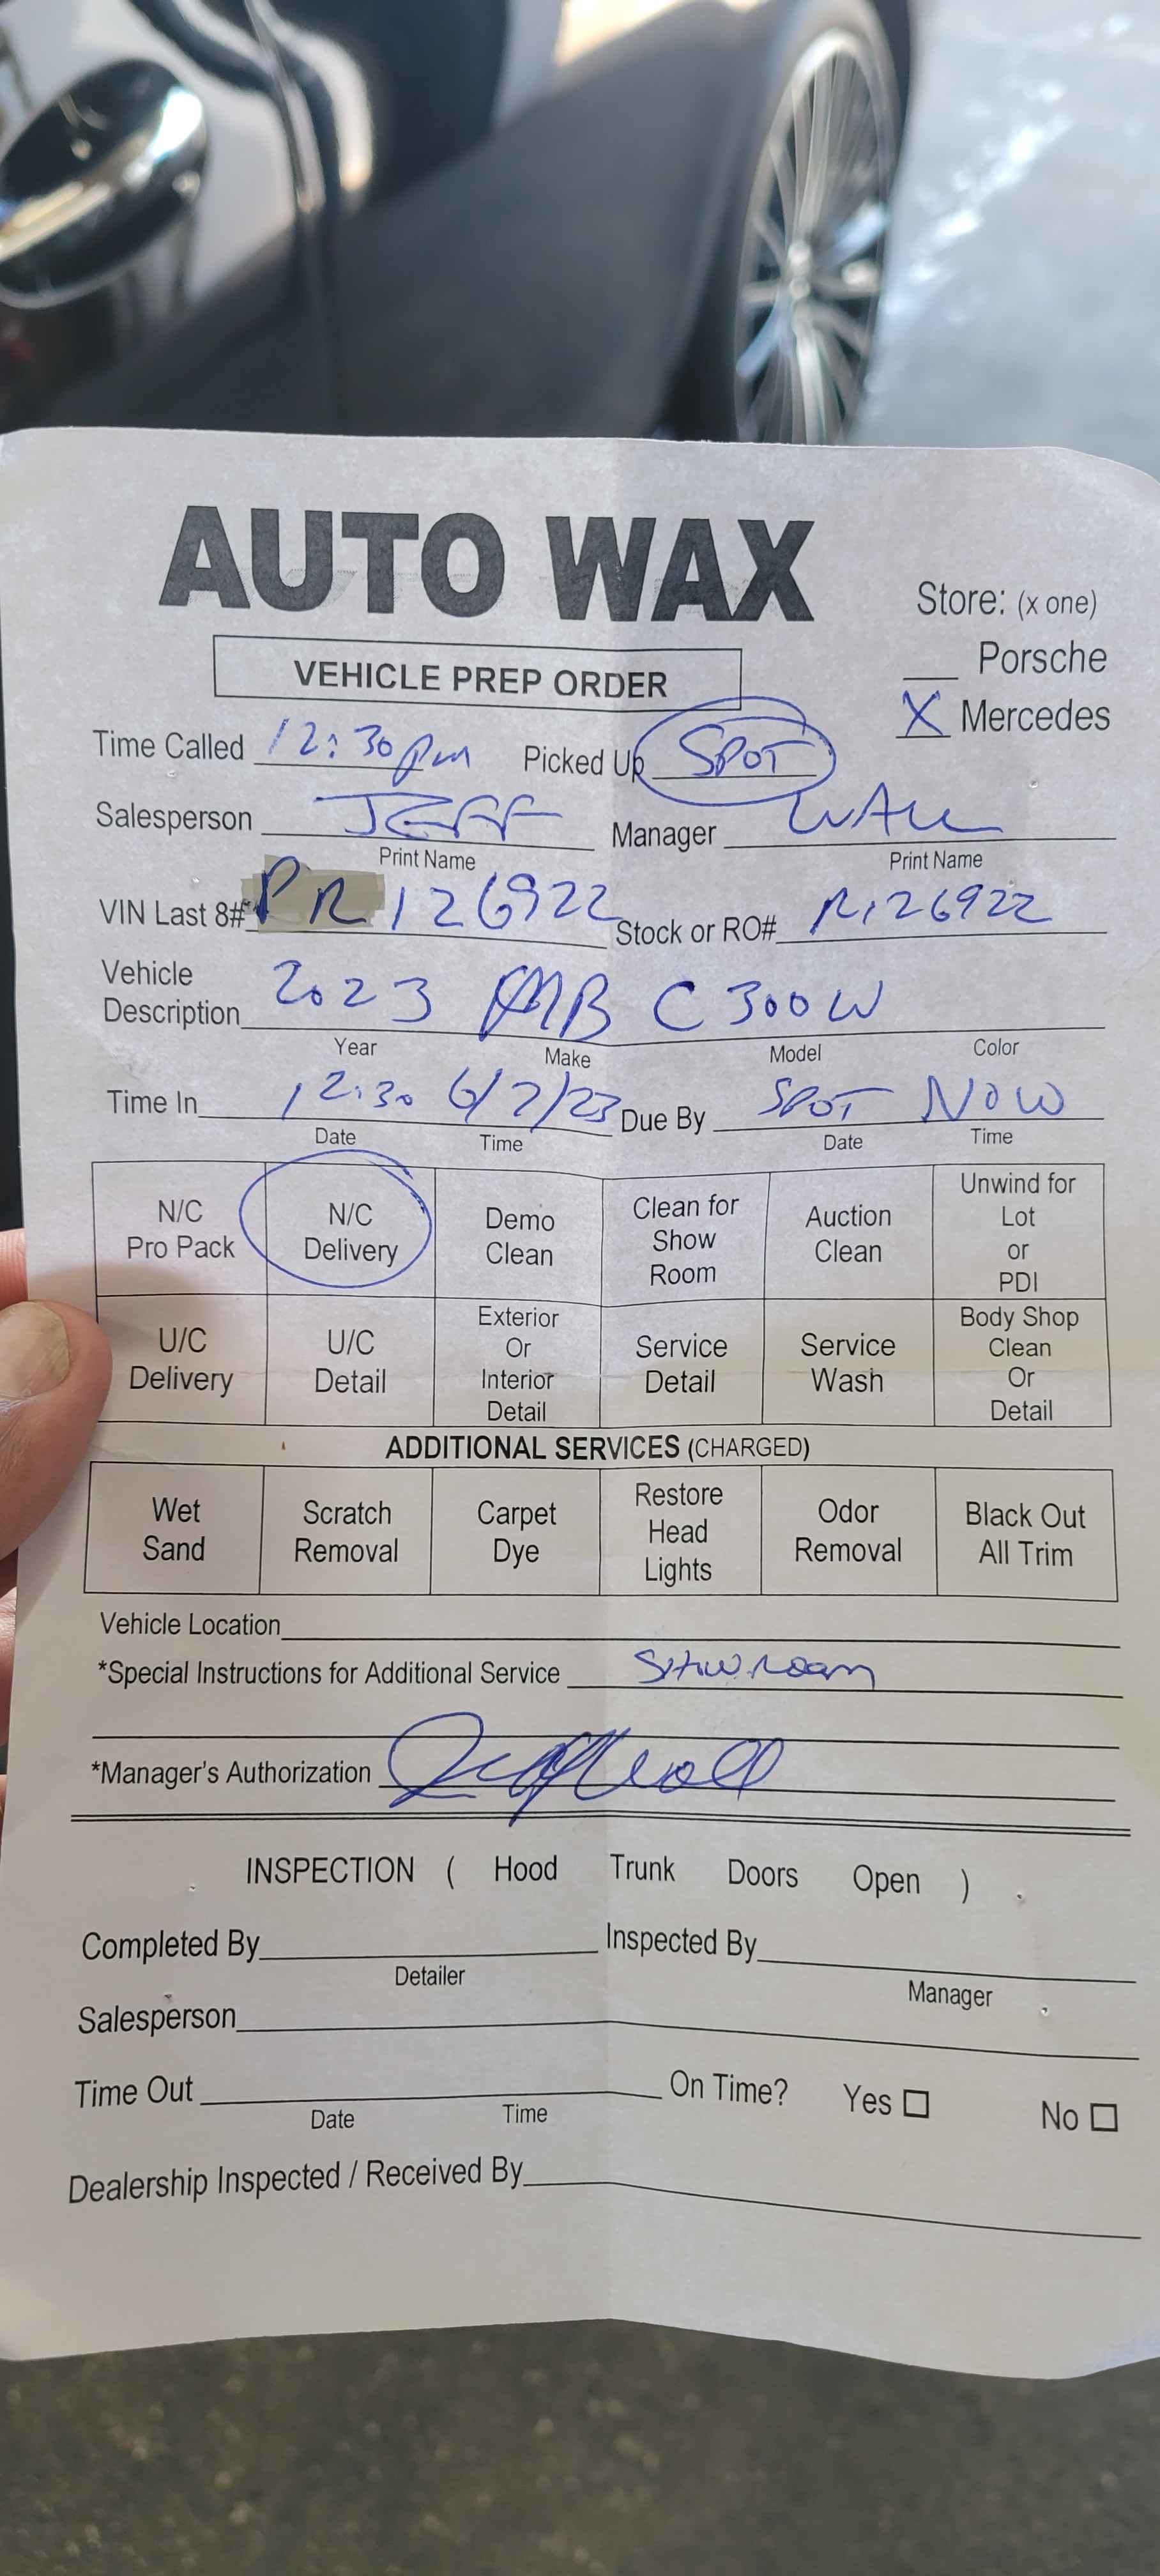 AUTO WAX
Store: (x one)
VEHICLE PREP ORDER
___ Porsche
X Mercedes
Time Called 12:30pm Picked Up SPOT
Salesperson JEFF Manager WALL
Print Name Print Name
VIN Last 8# PR126922 Stock or RO# R126922
Vehicle Description 2023 MB C300W
Year Make Model Color
Time In 12:30 6/7/23 Due By SPOT NOW
Date Time Date Time
N/C Pro Pack
N/C Delivery
Demo Clean
Clean for Show Room
Auction Clean
Unwind for Lot or PDI
U/C Delivery
U/C Detail
Exterior Or Interior Detail
Service Detail
Service Wash
Body Shop Clean Or Detail
ADDITIONAL SERVICES (CHARGED)
Wet Sand
Scratch Removal
Carpet Dye
Restore Head Lights
Odor Removal
Black Out All Trim
Vehicle Location
*Special Instructions for Additional Service Showroom
*Manager's Authorization
INSPECTION ( Hood Trunk Doors Open )
Completed By Inspected By
Detailer Manager
Salesperson
Time Out On Time? Yes ☐ No ☐
Date Time
Dealership Inspected / Received By